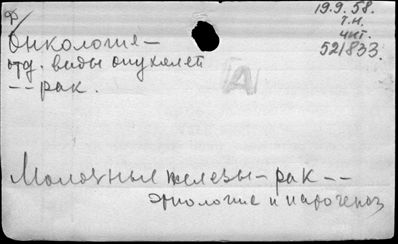 ф
19.9.58.
т.н.
чит.
521833.
Онкология –
отд. виды опухолей
-- рак.
А
Молочные железы – рак --
этиология и патогенез